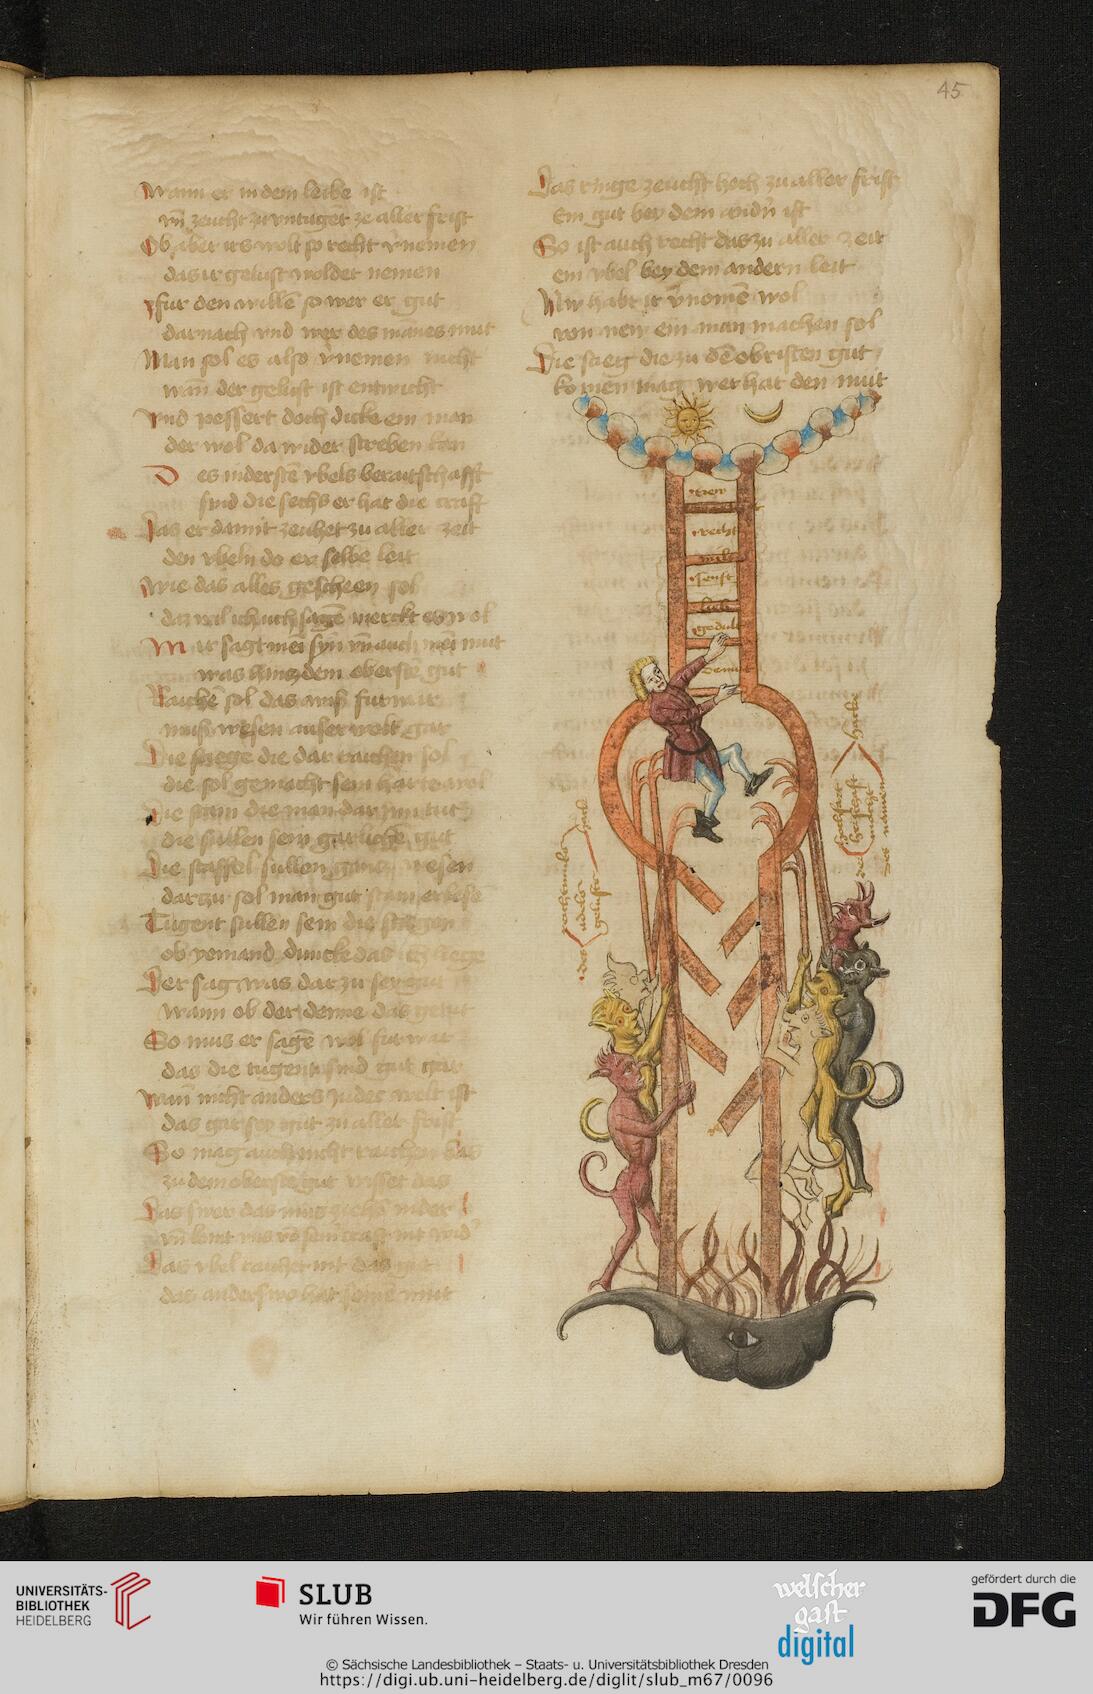 45
Wann er in dem leibe ist
vn̄ zeucht zu vntuget ze aller frist
Ob aber irs wolt so recht v̄nemen
das ir gelust woldet nemen
fur den willē so wer er gut
darnach vnd wer des manes mut
Man sol es also v̄nemen nicht
wan̄ der gelust ist entwicht
vnd pessert doch dicke ein man
der wol da wider streben kan
Des niderstē vbels beraitschafft
sind die sechs er hat die craft
Das er damit zeuhet zu aller zeit
den vbeln do er selbe leit
Wie das alles gescheen sol
daz wil ich uch sagē merckt es wol
Mir sagt mei syn vn̄ auch mei mut
was hincz dem oberstē gut
Raichē sol das mus furwar
mus wesen auserwelt gar
Die stiege die dar raichen sol
die sol gemacht sein harte wol
Die stain die man dar inn tut
die sullen sein gar lichē gut
Die staffel sullen gancz wesen
darzu sol man gut stain erlesē
Tugent sullen sein die stiegen
ob yemand duncke das ich liege
Der sag was darzu sey gut
wann ob der denne das getut
So mus er sagē wol furwar
das die tugent sind gut gar
wan̄ nicht anders in der welt ist
das gut sey gut zu aller frist
So mag auch nicht raichen bas
zu dem oberstē gut wisset das
Das vbel raichet nit das gut
das anderswo hat seinē mut
Das ringe zeucht hoch zu aller frist
Ein gut bey dem andn̄ ist
So ist auch recht das zu aller zeit
ein vbel bey dem andern leit
Nw habt ir v̄nomē wol
von wew ein man machen sol
Die stieg die zu dē obristen gut
komen mag wer hat den mut
trew
recht
milt
senft
lieb
gedult
demut
UNIVERSITÄTS-
BIBLIOTHEK
HEIDELBERG
SLUB
Wir führen Wissen.
welscher
gast
digital
gefördert durch die
DFG
© Sächsische Landesbibliothek – Staats- u. Universitätsbibliothek Dresden
https://digi.ub.uni-heidelberg.de/diglit/slub_m67/0096